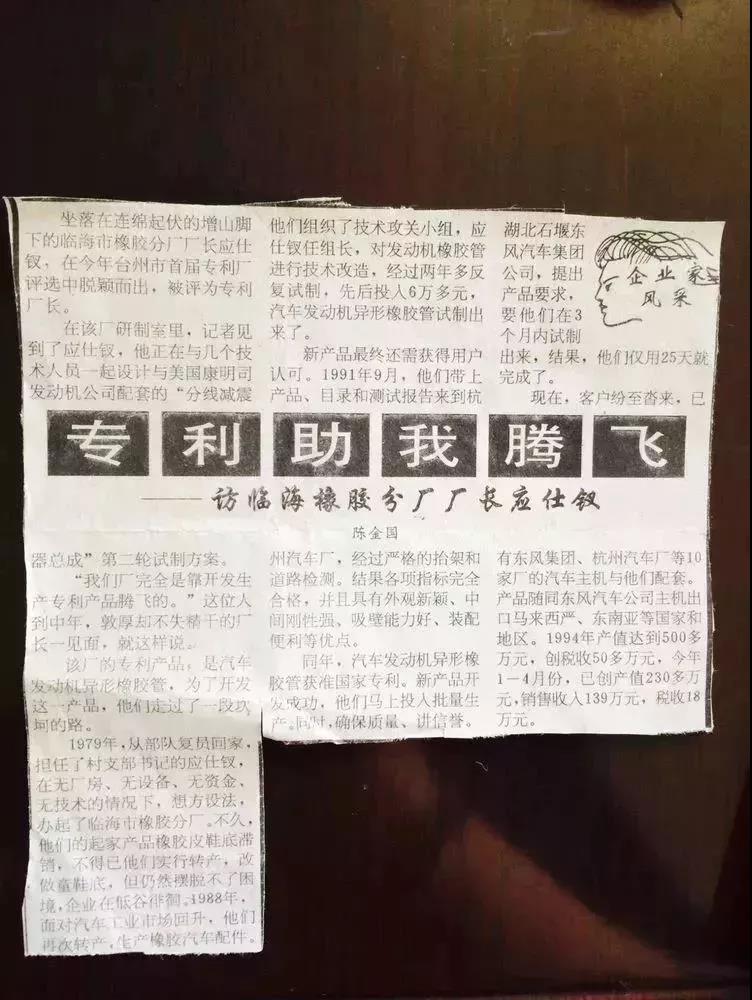 企业家
风采
专利助我腾飞
——访临海橡胶分厂厂长应仕钗
陈金国
坐落在连绵起伏的增山脚
下的临海市橡胶分厂厂长应仕
钗，在今年台州市首届专利厂
评选中脱颖而出，被评为专利
厂长。
在该厂研制室里，记者见
到了应仕钗，他正在与几个技
术人员一起设计与美国康明司
发动机公司配套的“分线减震
器总成”第二轮试制方案。
“我们厂完全是靠开发生
产专利产品腾飞的。”这位人
到中年，敦厚却不失精干的厂
长一见面，就这样说。
该厂的专利产品，是汽车
发动机异形橡胶管，为了开发
这一产品，他们走过了一段坎
坷的路。
1979年，从部队复员回家，
担任了村支部书记的应仕钗，
在无厂房、无设备、无资金、
无技术的情况下，想方设法，
办起了临海市橡胶分厂。不久，
他们的起家产品橡胶皮鞋底滞
销，不得已他们实行转产，改
做童鞋底，但仍然摆脱不了困
境，企业在低谷徘徊。1988年，
面对汽车工业市场回升，他们
再次转产，生产橡胶汽车配件。
他们组织了技术攻关小组，应
仕钗任组长，对发动机橡胶管
进行技术改造，经过两年多反
复试制，先后投入6万多元，
汽车发动机异形橡胶管试制出
来了。
新产品最终还需获得用户
认可。1991年9月，他们带上
产品、目录和测试报告来到杭
州汽车厂，经过严格的抬架和
道路检测。结果各项指标完全
合格，并且具有外观新颖、中
间刚牲强、吸壁能力好、装配
便利等优点。
同年，汽车发动机异形橡
胶管获准国家专利。新产品开
发成功，他们马上投入批量生
产。同时，确保质量、讲信誉。
湖北石堰东
风汽车集团
公司，提出
产品要求，
要他们在3
个月内试制
出来，结果，他们仅用25天就
完成了。
现在，客户纷至沓来，已
有东风集团、杭州汽车厂等10
家厂的汽车主机与他们配套。
产品随同东风汽车公司主机出
口马来西严、东南亚等国家和
地区。1994年产值达到500多
万元，创税收50多万元，今年
1—4月份，已创产值230多万
元，销售收入139万元，税收18
万元。